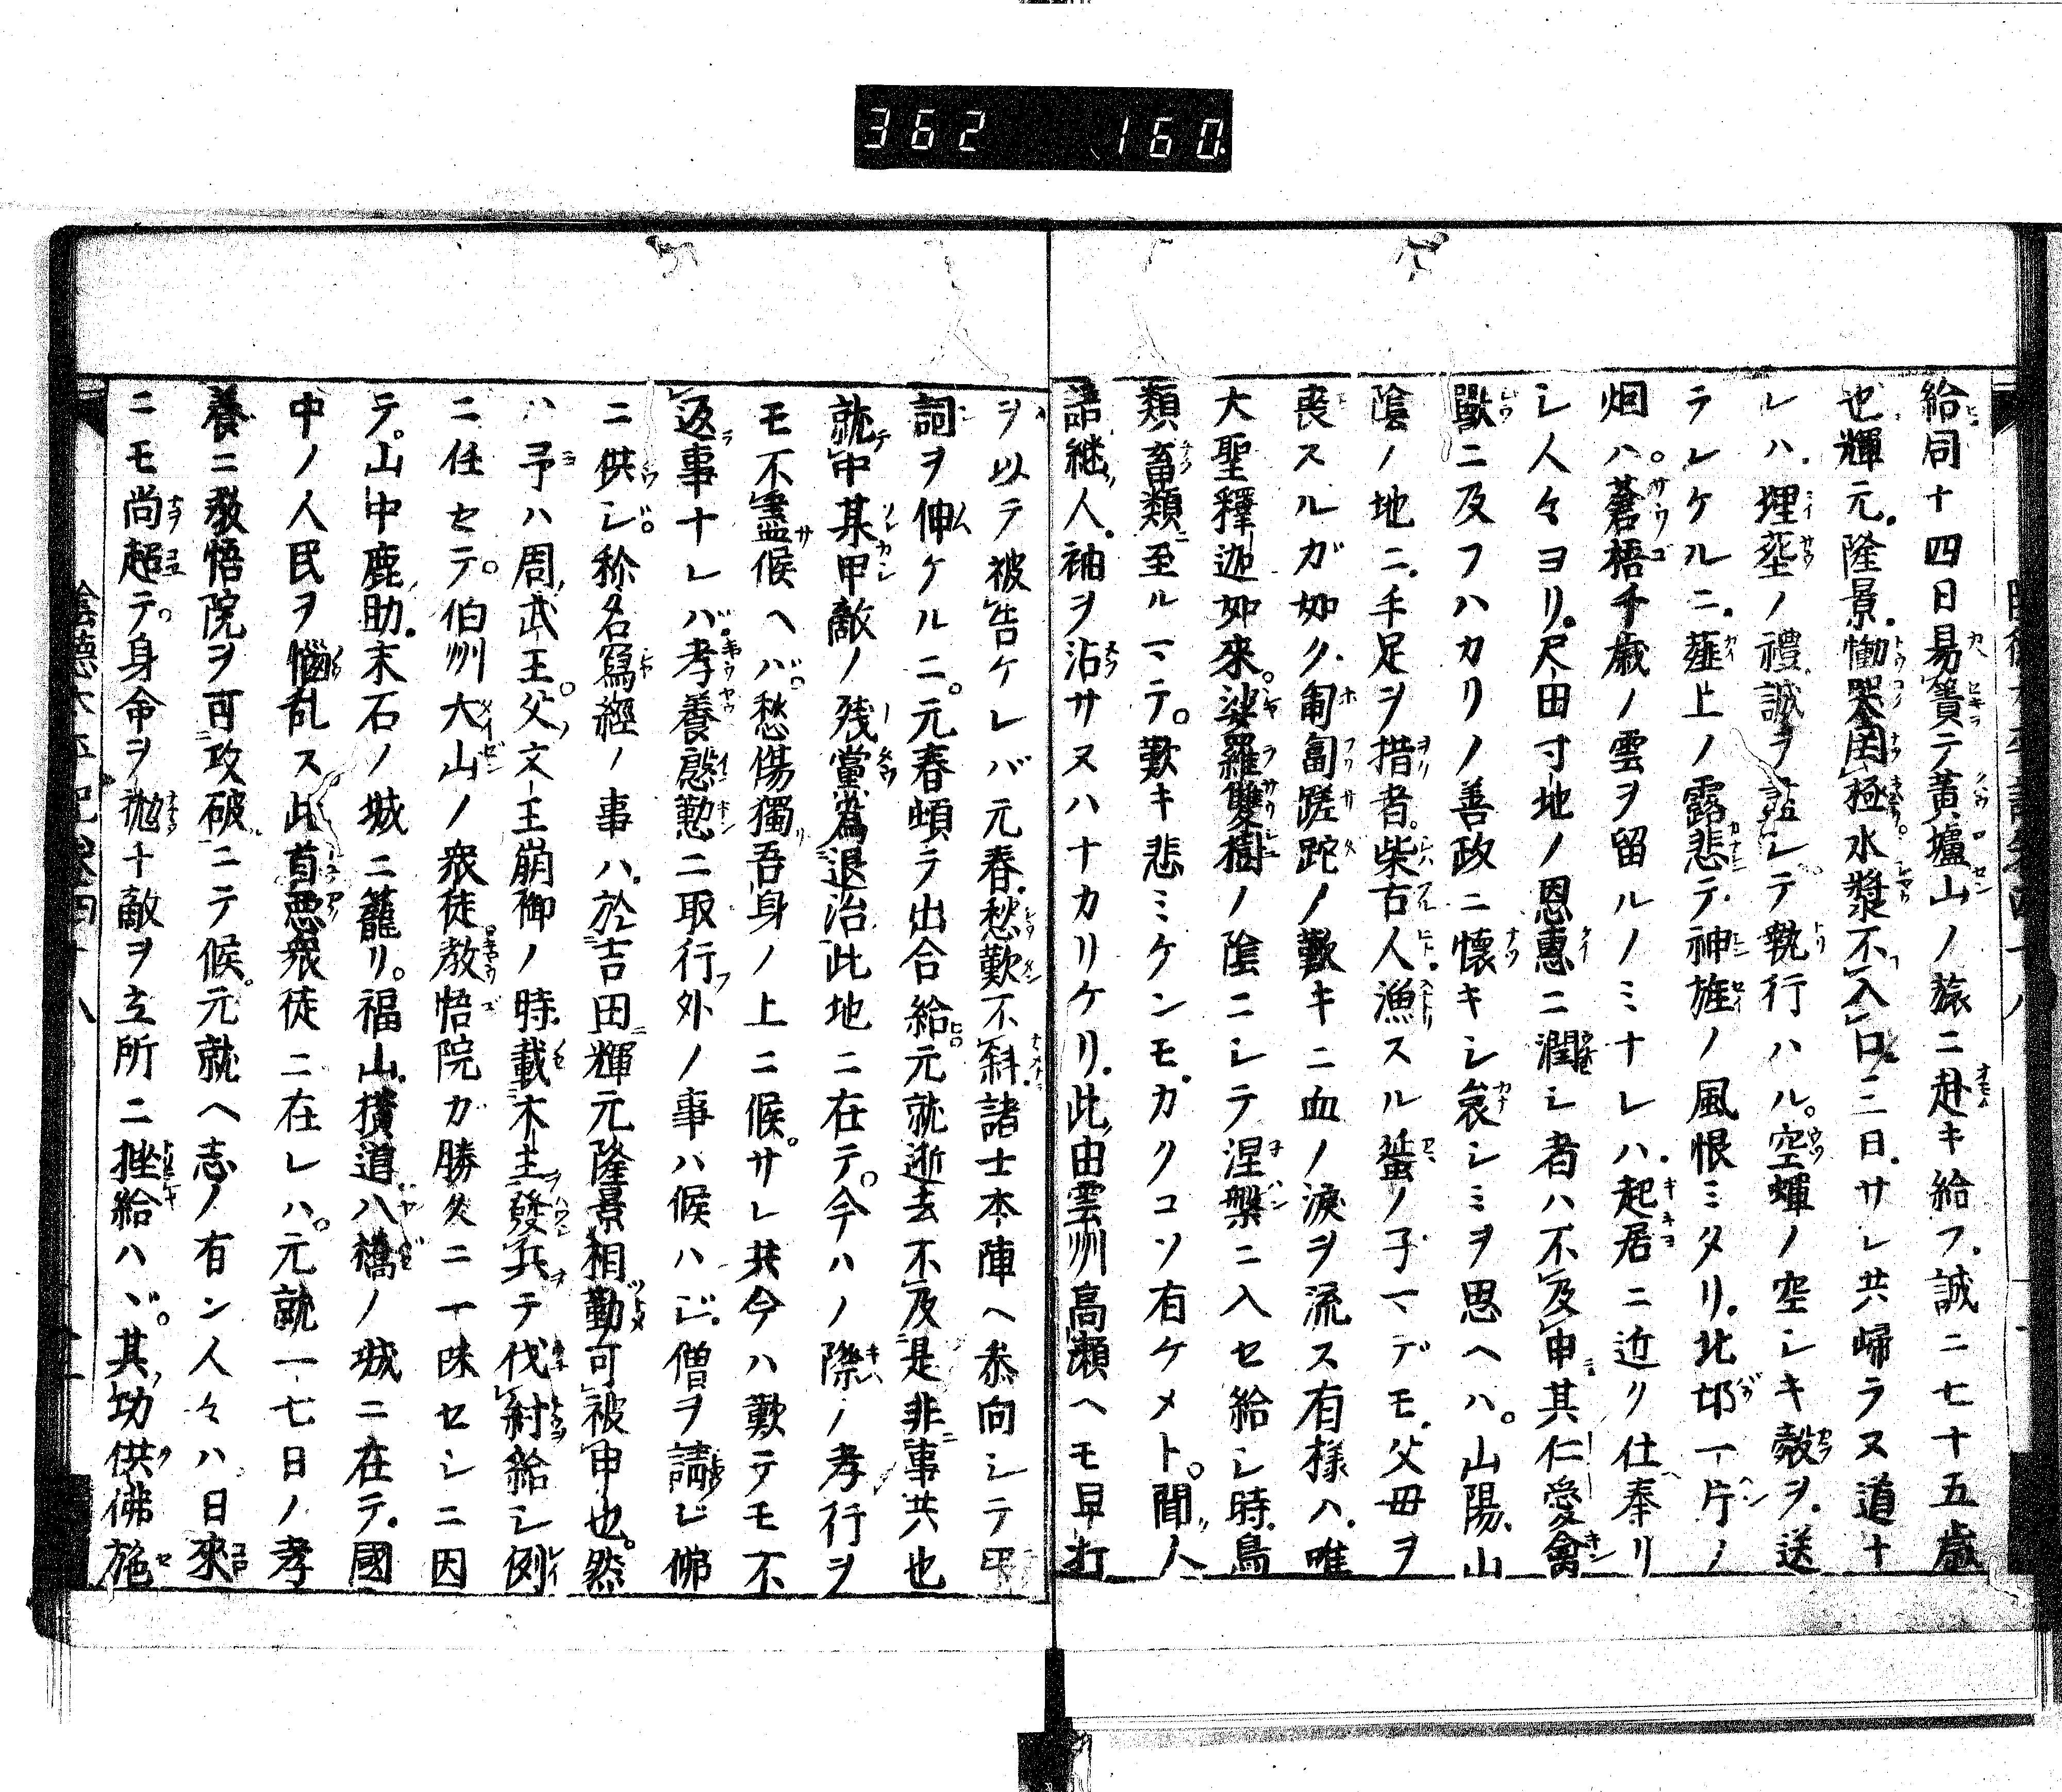 362 160
給同十四日易簀テ黄壚山ノ旅ニ赴キ給フ誠ニ七十五歳
也輝元隆景慟哭罔極水漿不入口三日サレ共帰ラヌ道ナ
レハ埋塟ノ禮誠ヲ竭シテ執行ハル空蟬ノ空シキ殻ヲ送
ラレケルニ薤上ノ露悲テ神旌ノ風恨ミタリ北邙一片ノ
烟ハ蒼梧千歳ノ雲ヲ留ルノミナレハ起居ニ近ク仕奉リ
シ人々ヨリ尺田寸地ノ恩惠ニ潤シ者ハ不及申其仁愛禽
獸ニ及フハカリノ善政ニ懐キシ哀シミヲ思ヘハ山陽山
陰ノ地ニ手足ヲ措者柴古人漁スル蜑ノ子マデモ父母ヲ
喪スルガ如ク匍匐蹉跎ノ歎キニ血ノ涙ヲ流ス有様ハ唯
大聖釋迦如來娑羅雙樹ノ陰ニシテ涅槃ニ入セ給シ時鳥
類畜類至ルマテ歎キ悲ミケンモカクコソ有ケメト聞人
語継人袖ヲ沾サヌハナカリケリ此由雲州高瀬ヘモ早打
ヲ以テ被告ケレバ元春愁歎不斜諸士本陣ヘ参向シテ
詞ヲ伸ケルニ元春頓テ出合給元就逝去不及是非事共也
就中某甲敵ノ残黨為退治此地ニ在テ今ハノ際ノ孝行ヲ
モ不盡候ヘバ愁傷獨吾身ノ上ニ候サレ共今ハ歎テモ不
返事ナレバ孝養慇懃ニ取行外ノ事ハ候ハジ僧ヲ請ビ佛
ニ供ジ称名寫經ノ事ハ於吉田輝元隆景相勤可被申也然
ハ予ハ周武王父文王崩御ノ時載木主發兵テ伐紂給シ例
ニ任セテ伯州大山ノ衆徒教悟院カ勝久ニ一味セシニ因
テ山中鹿助末石ノ城ニ籠リ福山横道八橋ノ城ニ在テ國
中ノ人民ヲ惱乱ス此首悪衆徒ニ在レハ元就一七日ノ孝
養ニ教悟院ヲ可攻破ニテ候元就ヘ志ノ有ン人々ハ日來
ニモ尚超テ身命ヲ抛ナ敵ヲ立所ニ挫給ハヾ其功供佛施
陰德太平記巻四十八